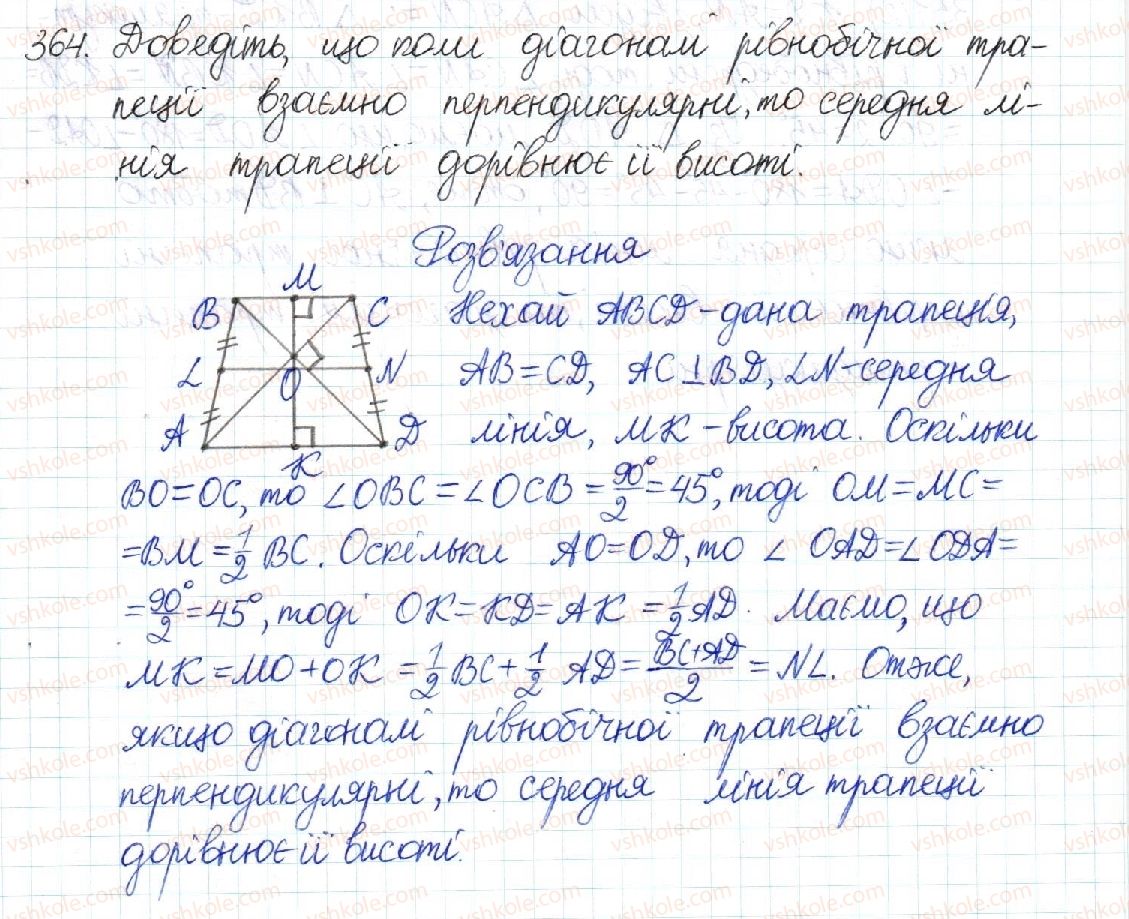 364. Доведіть, що коли діагоналі рівнобічної тра-
пеції взаємно перпендикулярні, то середня лі-
нія трапеції дорівнює її висоті.
Розв'язання
M
B C Нехай ABCD - дана трапеція,
L O N AB = CD, AC ⊥ BD, LN - середня
A D лінія, MK - висота. Оскільки
K
BO = OC, то ∠OBC = ∠OCB = 90°/2 = 45°, тоді OM = MC =
= BM = 1/2 BC. Оскільки AO = OD, то ∠ OAD = ∠ODA =
= 90°/2 = 45°, тоді OK = KD = AK = 1/2 AD. Маємо, що
MK = MO + OK = 1/2 BC + 1/2 AD = BC+AD/2 = NL. Отже,
якщо діагоналі рівнобічної трапеції взаємно
перпендикулярні, то середня лінія трапеції
дорівнює її висоті.
vshkole.com